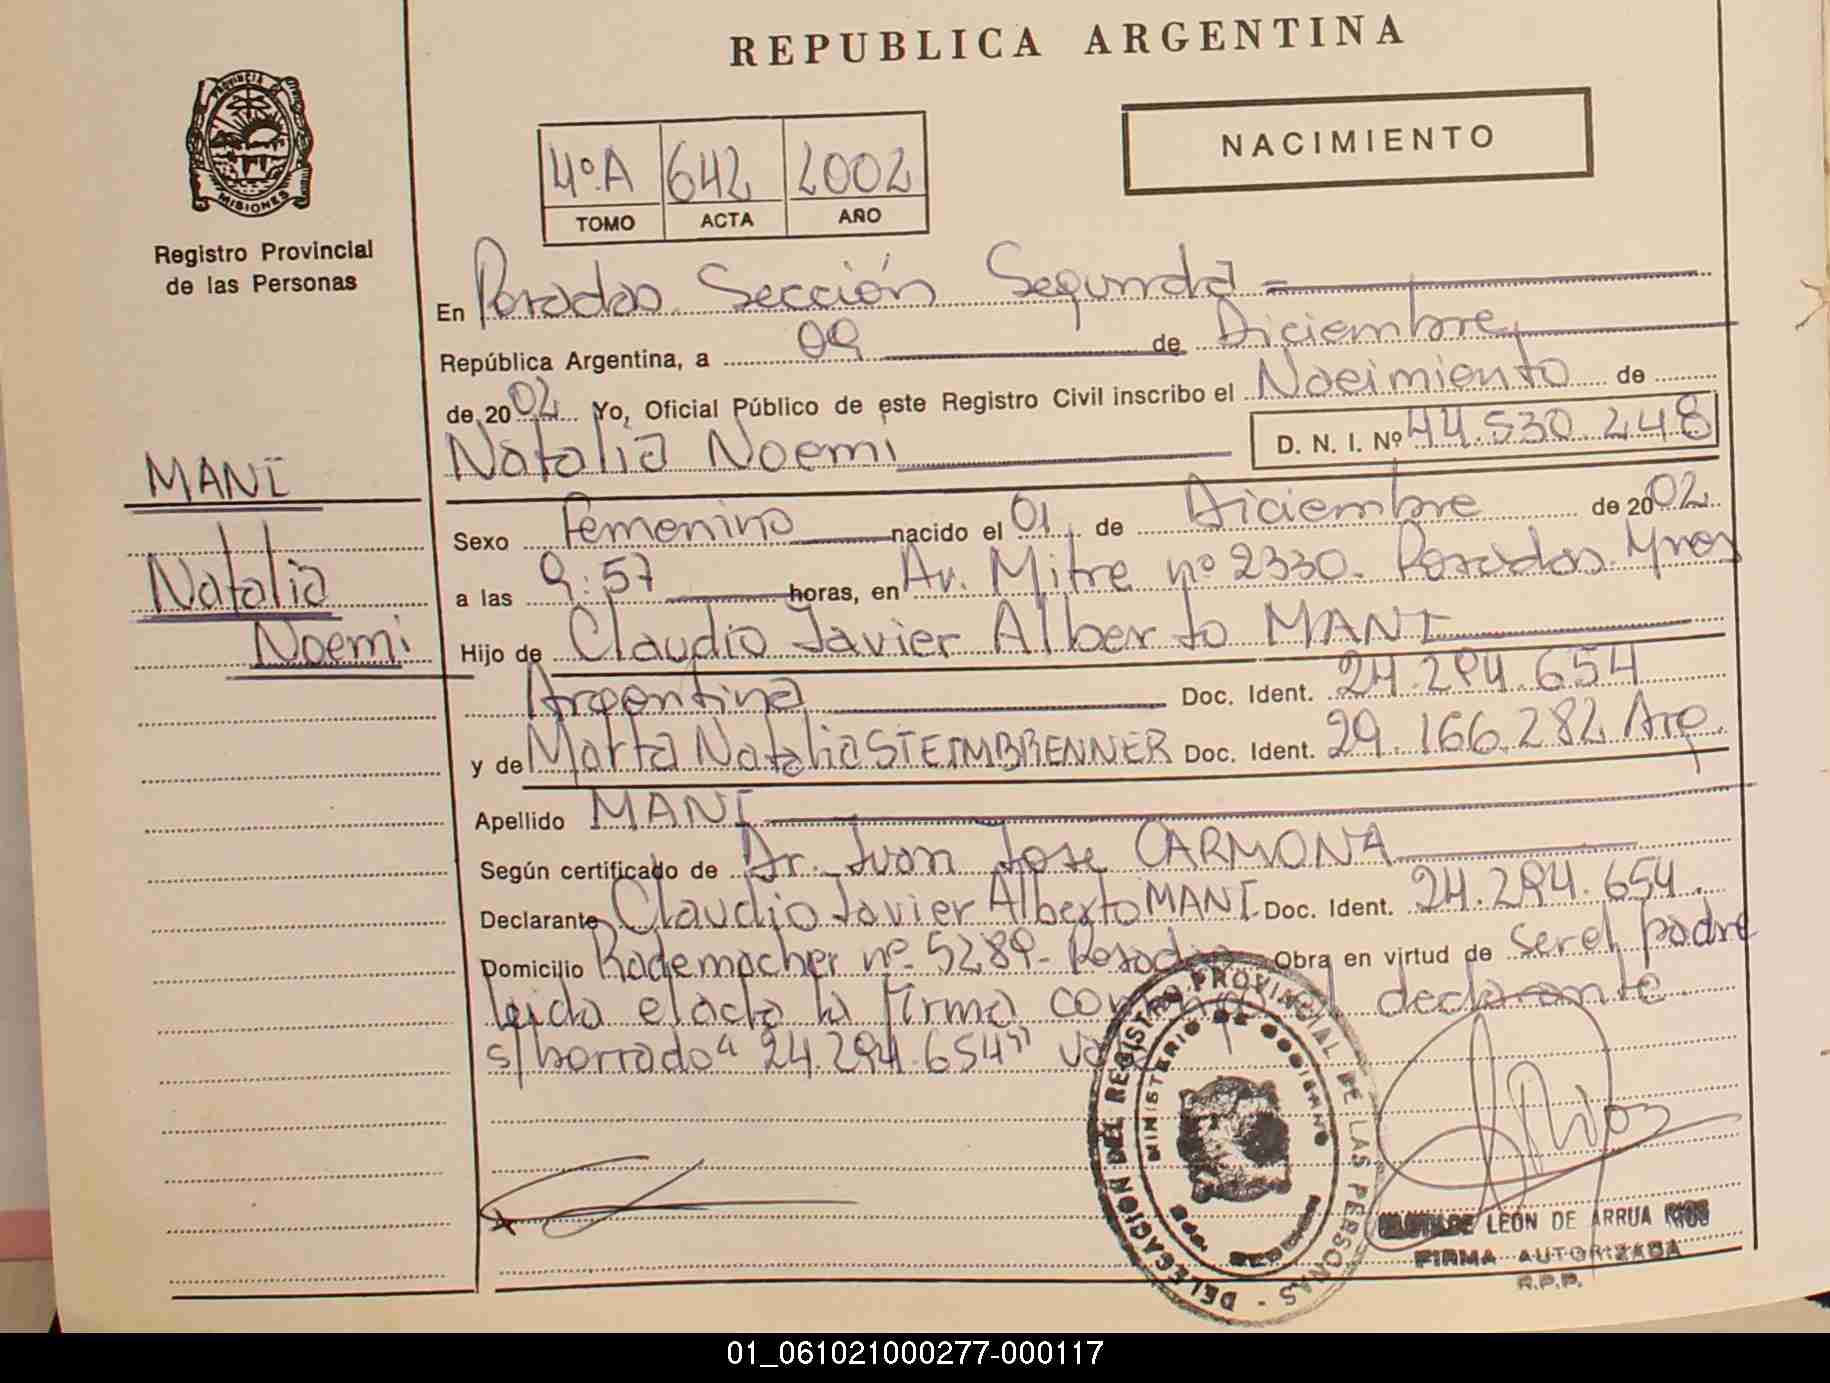 REPUBLICA ARGENTINA
NACIMIENTO
4º.A 642 2002
TOMO ACTA AÑO
PROVINCIA DE
MISIONES
Registro Provincial
de las Personas
En Posadas. Sección Segunda =
República Argentina, a 09 de Diciembre,
de 2002 Yo, Oficial Público de este Registro Civil inscribo el Nacimiento de
Natalia Noemi D. N. I. Nº 44.530.248
MANI
Natalia
Noemi
Sexo Femenino nacido el 01 de Diciembre de 2002
a las 9:57 horas, en Av. Mitre nº 2330. Posadas. Mnes
Hijo de Claudio Javier Alberto MANI
Argentina Doc. Ident. 24.294.654
y de Marta Natalia STEIMBRENNER Doc. Ident. 29.166.282 Arg.
Apellido MANI
Según certificado de Dr. Juan Jose CARMONA
Declarante Claudio Javier Alberto MANI. Doc. Ident. 24.294.654.
Domicilio Rademacher nº 5289- Posadas Obra en virtud de ser el padre
leida el acta la firma conmigo el declarante.
s/borrado "24.294.654" vale
DELEGACION DEL REGISTRO PROVINCIAL DE LAS PERSONAS -
MINISTERIO DE GOBIERNO
LEON DE ARRUA RIOS
FIRMA AUTORIZADA
R.P.P.
01_061021000277-000117